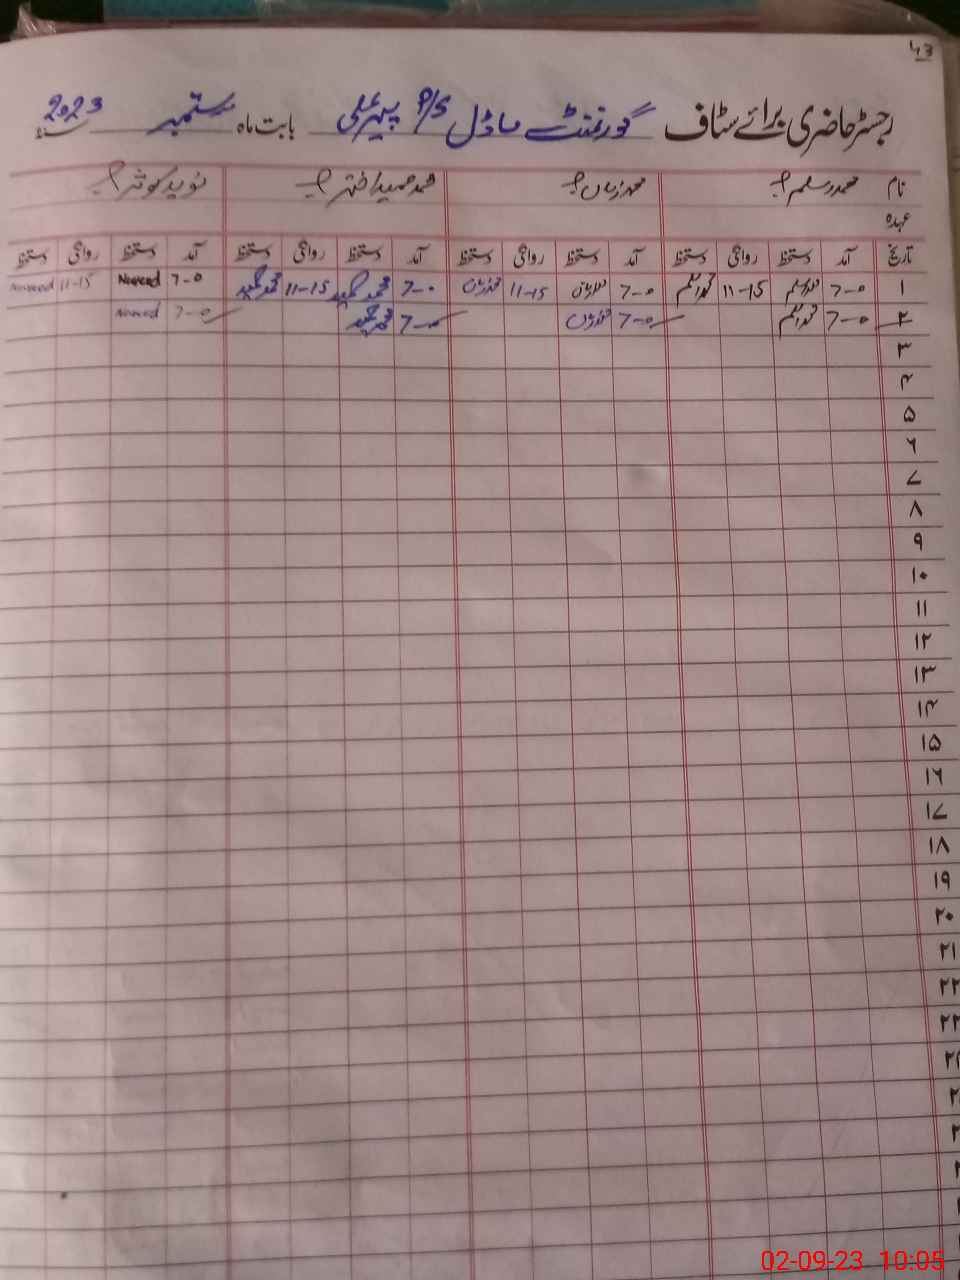 43
رجسٹر حاضری برائے سٹاف گورنمنٹ ماڈل P/S پیر علی بابت ماہ ستمبر سنہ 2023
نام محمد اسلم محمد زمان محمد حمید اختر نوید کوثر
عہدہ
تاریخ آمد دستخط روانگی دستخط آمد دستخط روانگی دستخط آمد دستخط روانگی دستخط آمد دستخط روانگی دستخط
۱ 7-0 محمد اسلم 11-15 محمد اسلم 7-0 محمد زمان 11-15 محمد زمان 7-0 محمد حمید 11-15 محمد حمید 7-0 Naveed 11-15 Naveed
۲ 7-0 محمد اسلم 7-0 محمد زمان 7-0 محمد حمید 7-0 Naveed
۳
۴
۵
۶
۷
۸
۹
۱۰
۱۱
۱۲
۱۳
۱۴
۱۵
۱۶
۱۷
۱۸
۱۹
۲۰
۲۱
۲۲
۲۳
02-09-23 10:05